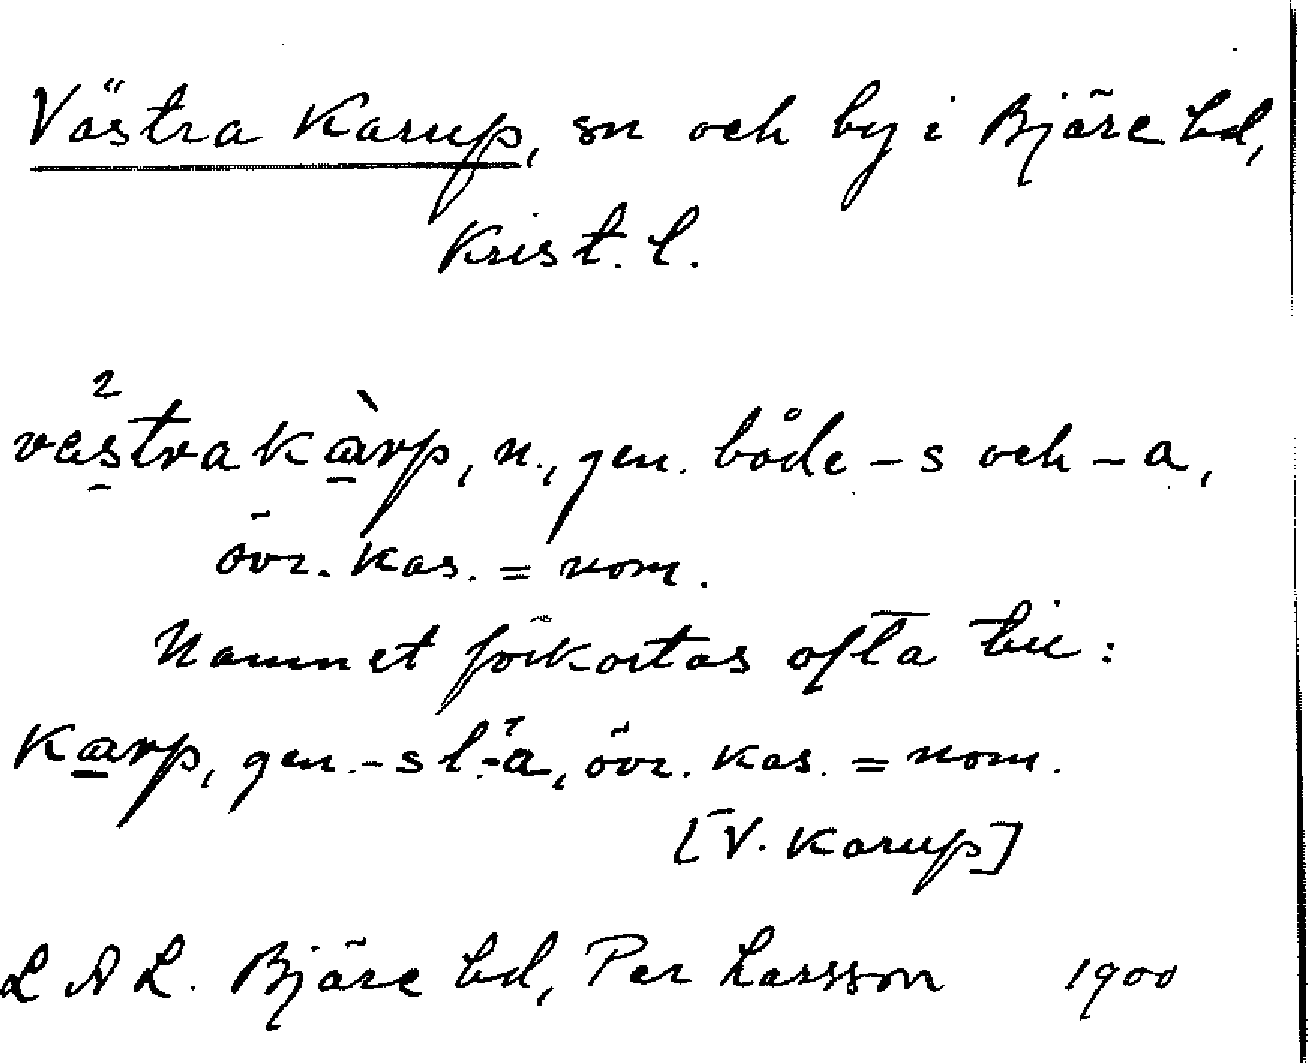 Västra Karup, sn och by i Bjäre hd,
Krist. l.
västrakàrp, n., gen. både -s och -a,
övr. kas. = nom.
Namnet förkortas ofta till:
karp, gen. -s l. -a, övr. kas. = nom.
[V. Karup]
L A L. Bjäre hd, Per Larsson 1900